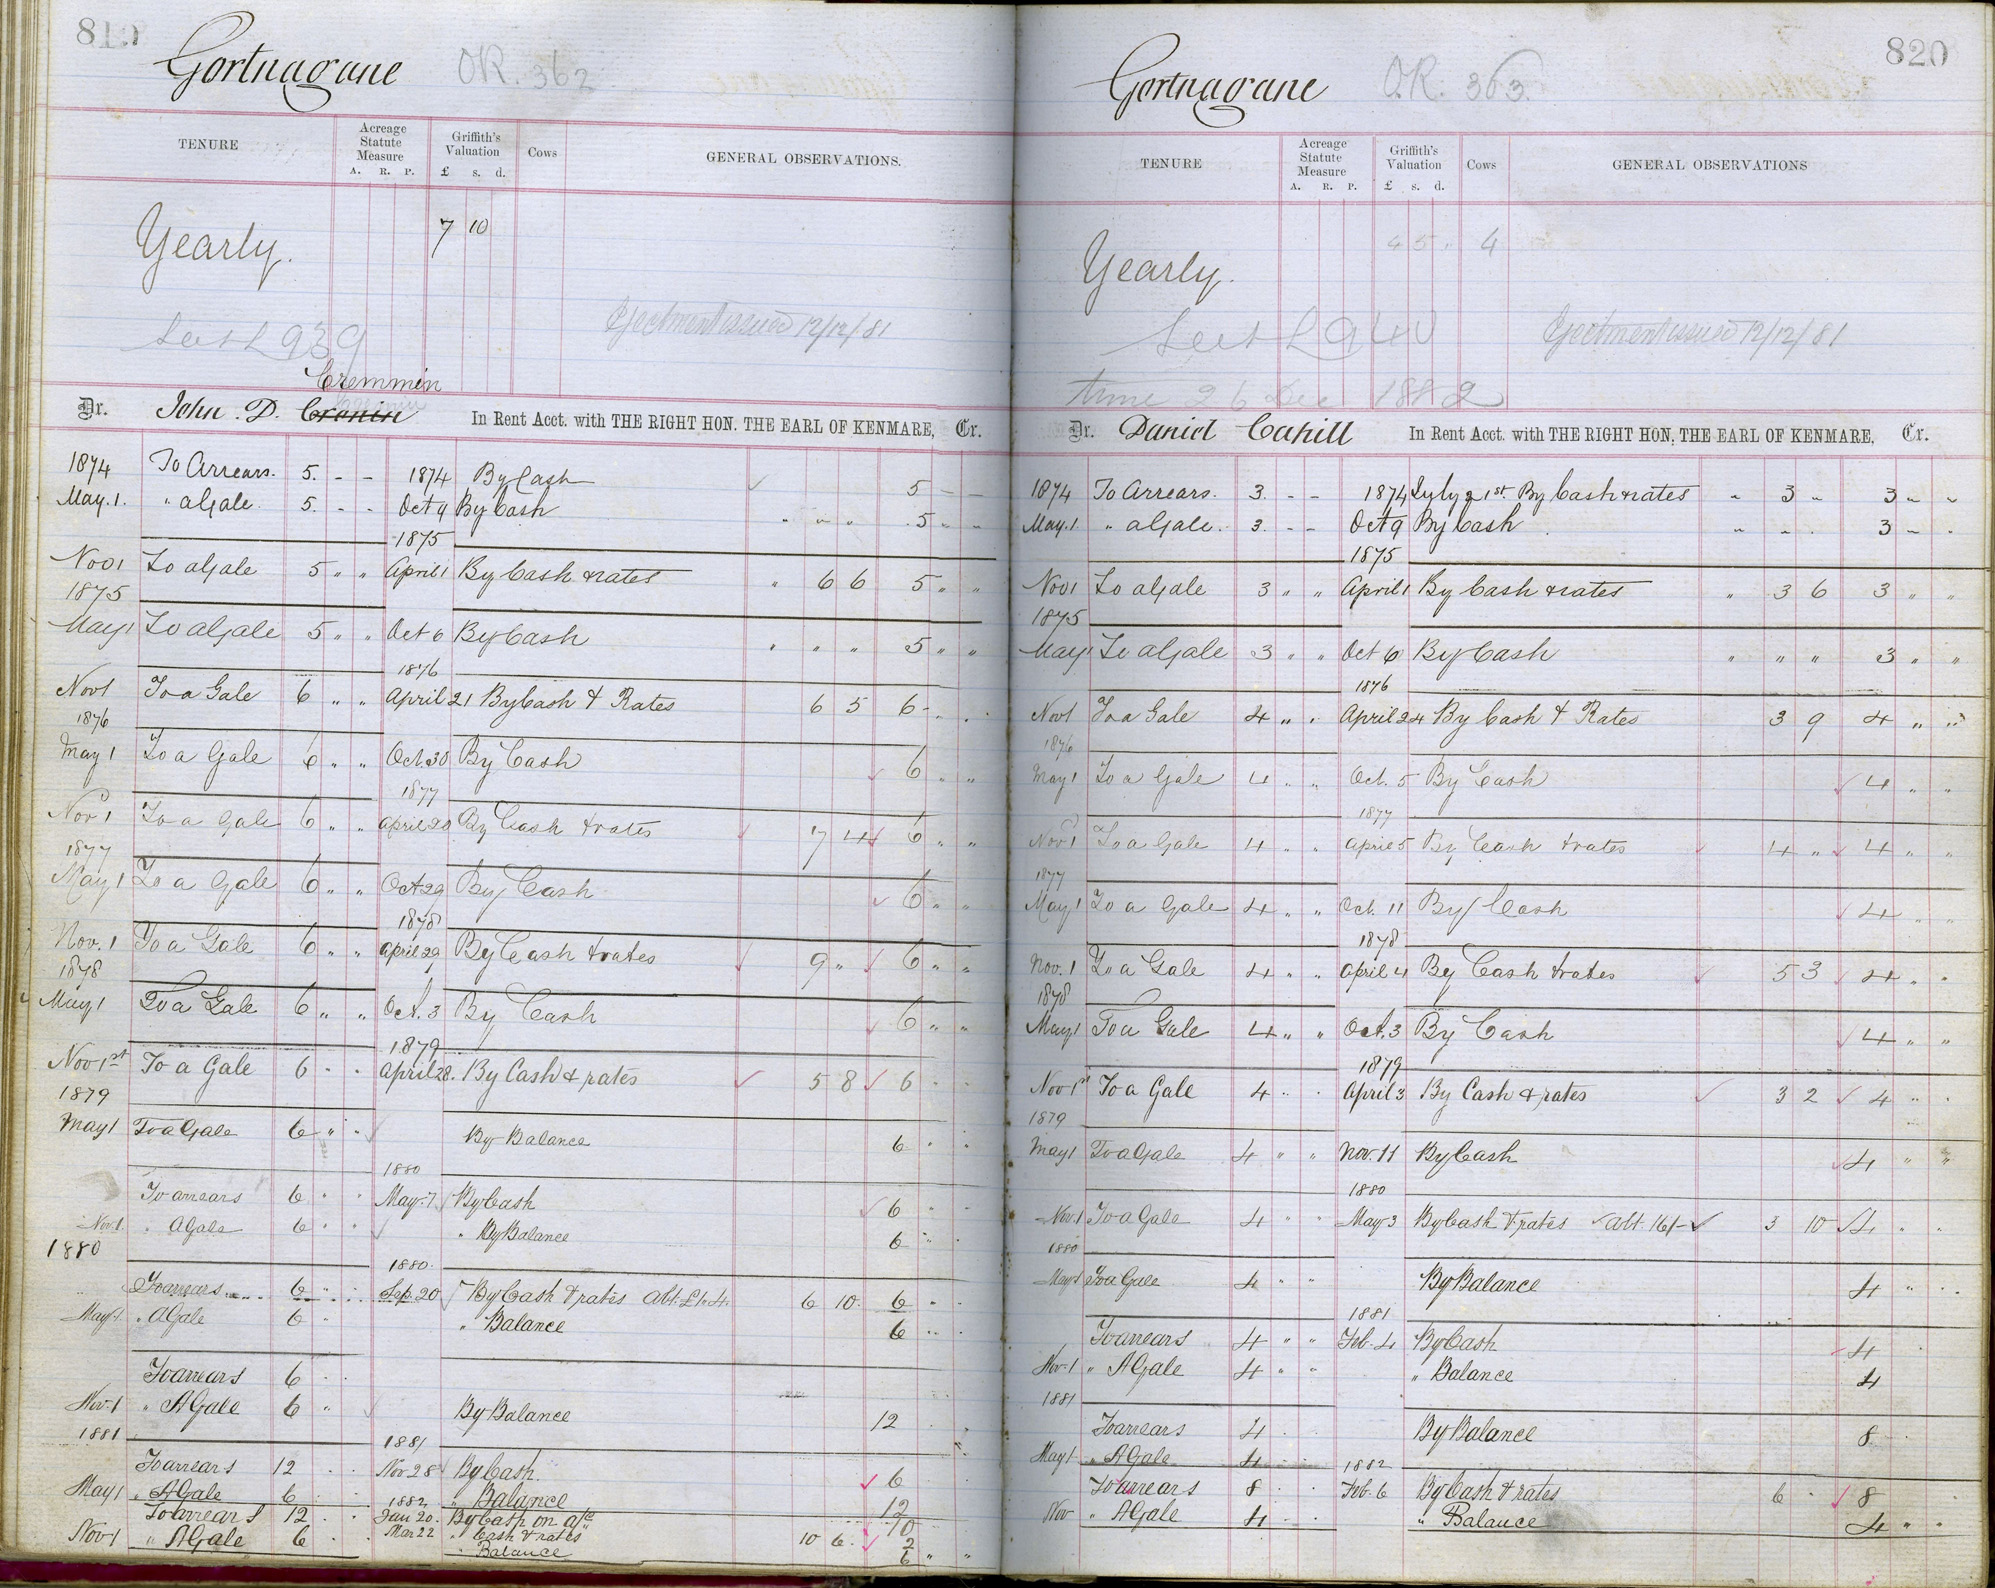 819
Gortnagane OR. 362
TENURE Acreage Statute Measure A. R. P. Griffith's Valuation £ s. d. Cows GENERAL OBSERVATIONS.
7 10
Yearly.
Ejectment issued 12/12/81
See L 939
Cremmin
Dr. John . D. Cronin In Rent Acct. with THE RIGHT HON. THE EARL OF KENMARE, Cr.
1874 To Arrears. 5. - - 1874 By Cash 5 - -
May. 1. " a Gale 5. - - Oct 9 By Cash " " " 5 " "
1875
Nov 1 To a Gale 5 " " April 1 By Cash & rates " 6 6 5 " "
1875
May 1 To a Gale 5 " " Oct 6 By Cash " " " 5 " "
1876
Nov 1 To a Gale 6 " " April 21 By Cash & Rates 6 5 6 - " "
1876
May 1 To a Gale 6 " " Oct. 30 By Cash 6 " "
1877
Nov 1 To a Gale 6 " " April 20 By Cash & rates 7 4 6 " "
1877
May 1 To a Gale 6 " " Oct 29 By Cash 6 " "
1878
Nov. 1 To a Gale 6 " " April 29 By Cash & rates 9 " 6 " "
1878
May 1 To a Gale 6 " " Oct. 3 By Cash 6 " "
1879
Nov 1st To a Gale 6 " " April 28. By Cash & rates 5 8 6 " "
1879
May 1 To a Gale 6 " " By Balance 6 " "
1880
To arrears 6 " " May. 7 By Cash 6 " "
Nov. 1 " A Gale 6 " " " By Balance 6 " "
1880
1880.
To arrears 6 " " Sep. 20 By Cash & rates abt. £1.4. 6 10. 6 " "
May. 1. " A Gale 6 " " Balance 6 " "
To arrears 6 " "
Nov. 1 " A Gale 6 " By Balance 12 " "
1881 1881
To arrears 12 " " Nov 28 By Cash 6
May 1 " A Gale 6 " " " Balance 12
1882
To arrears 12 " " Jan 20. By Cash on a/c 10
Nov. 1 " A Gale 6 " " Mar 22 " Cash & rates 10 6. 2
" Balance 6 " "
820
Gortnagane O.R. 363.
TENURE Acreage Statute Measure A. R. P. Griffith's Valuation £ s. d. Cows GENERAL OBSERVATIONS
4 5 " 4
Yearly.
See L 940 Ejectment issued 12/12/81
time 26 Dec 1882
Dr. Daniel Cahill In Rent Acct. with THE RIGHT HON. THE EARL OF KENMARE, Cr.
1874 To Arrears. 3. - - 1874 July 21st. By Cash & rates " 3 " 3 " "
May. 1 " a Gale. 3. - - Oct 9 By Cash " " . 3 " "
1875
Nov 1 To a Gale 3 " " April 1 By Cash & rates " 3 6 3 " "
1875
May 1 To a Gale 3 " " Oct 6 By Cash " " " 3 " "
1876
Nov 1 To a Gale 4 " " April 24 By Cash & Rates 3 9 4 " "
1876
May 1 To a Gale 4 " " Oct. 5 By Cash 4 " "
1877
Nov 1 To a Gale 4 " " April 5 By Cash & rates 4 " 4 " "
1877
May 1 To a Gale 4 " " Oct. 11 By Cash 4 " "
1878
Nov. 1 To a Gale 4 " " April 4 By Cash & rates 5 3 4 " "
1878
May 1 To a Gale 4 " " Oct. 3 By Cash 4 " "
1879
Nov 1st To a Gale 4 " " April 3 By Cash & rates 3 2 4 " "
1879
May 1 To a Gale 4 " " Nov. 11 By Cash 4 " "
1880
Nov. 1 To a Gale 4 " " May 3 By Cash & rates abt. 16/- 3 10 4 " "
1880
May 1 To a Gale 4 " " By Balance 4 " "
1881
To arrears 4 " " Feb. 4 By Cash 4
Nov. 1 " A Gale 4 " " " Balance 4
1881
To arrears 4 " " By Balance 8 " "
May 1 " A Gale 4 " "
1882
To arrears 8 " " Feb. 6 By Cash & rates 6 " 8
Nov " A Gale 4 " " " Balance 4 " "